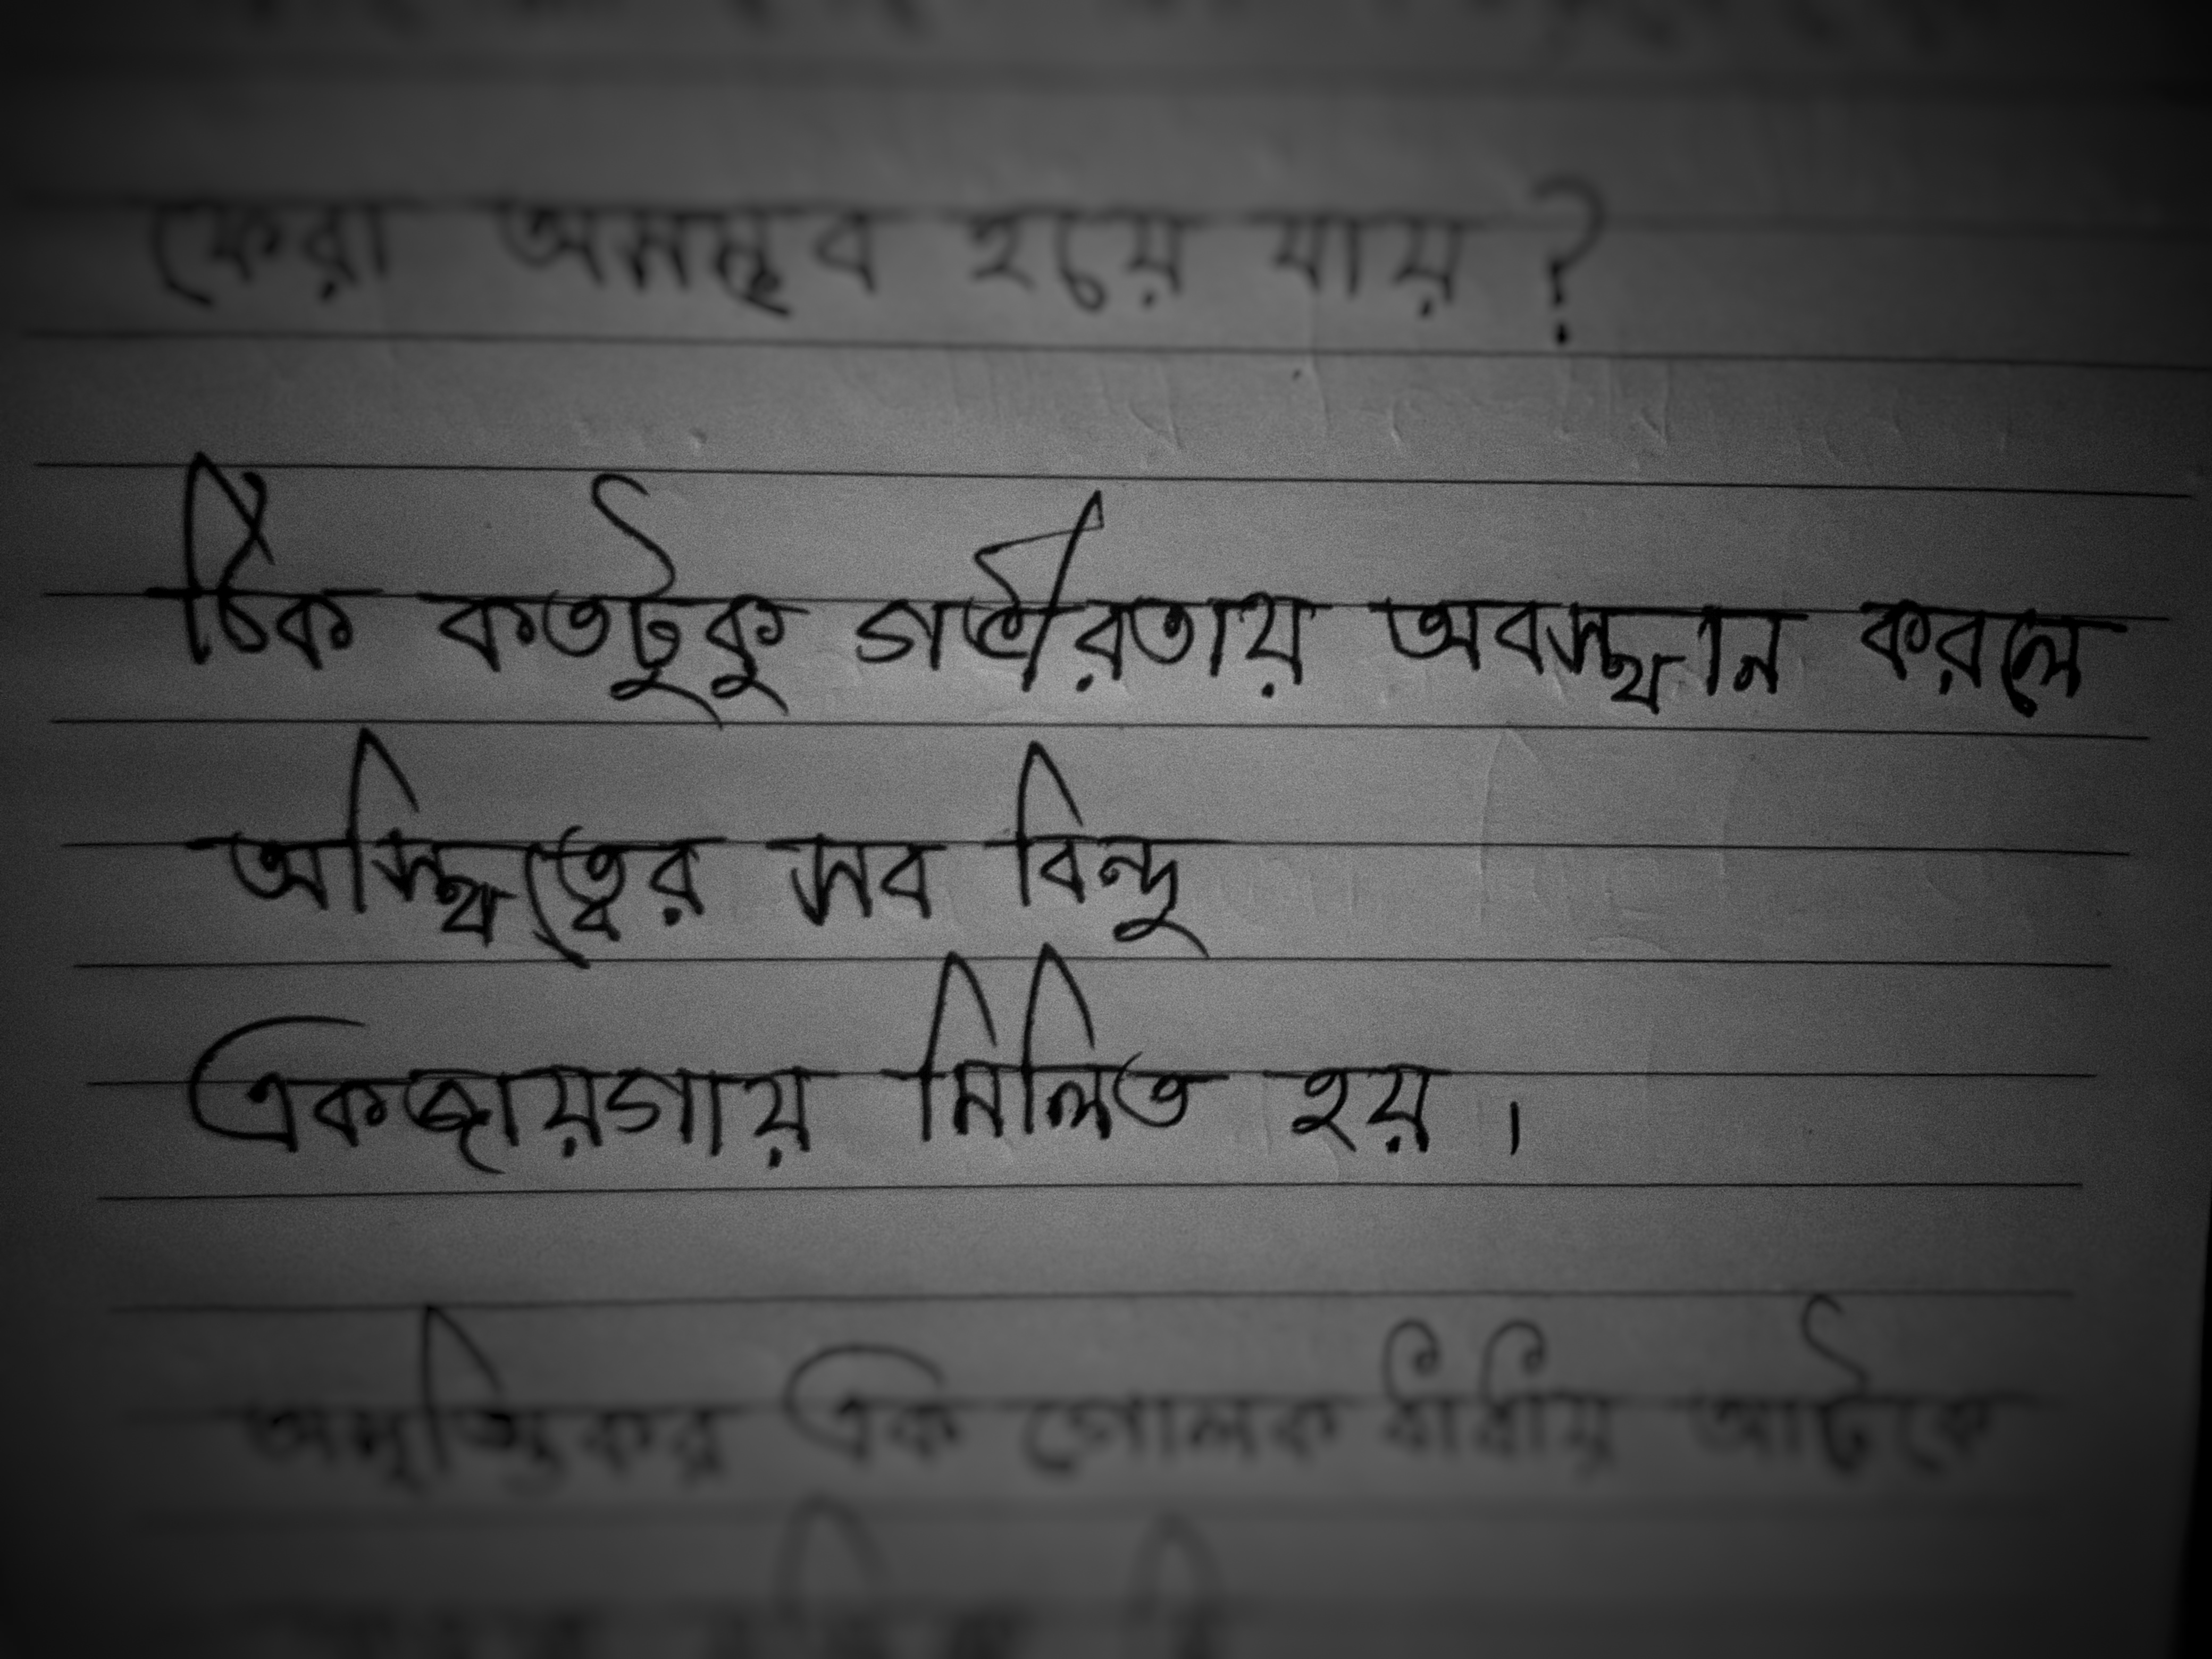 ফেরা অসম্ভব হয়ে যায় ?
ঠিক কতটুকু গভীরতায় অবস্থান করলে
অস্থিত্বের সব বিন্দু
একজায়গায় মিলিত হয় ।
এক গোলক ধাঁধাঁয় আটকে